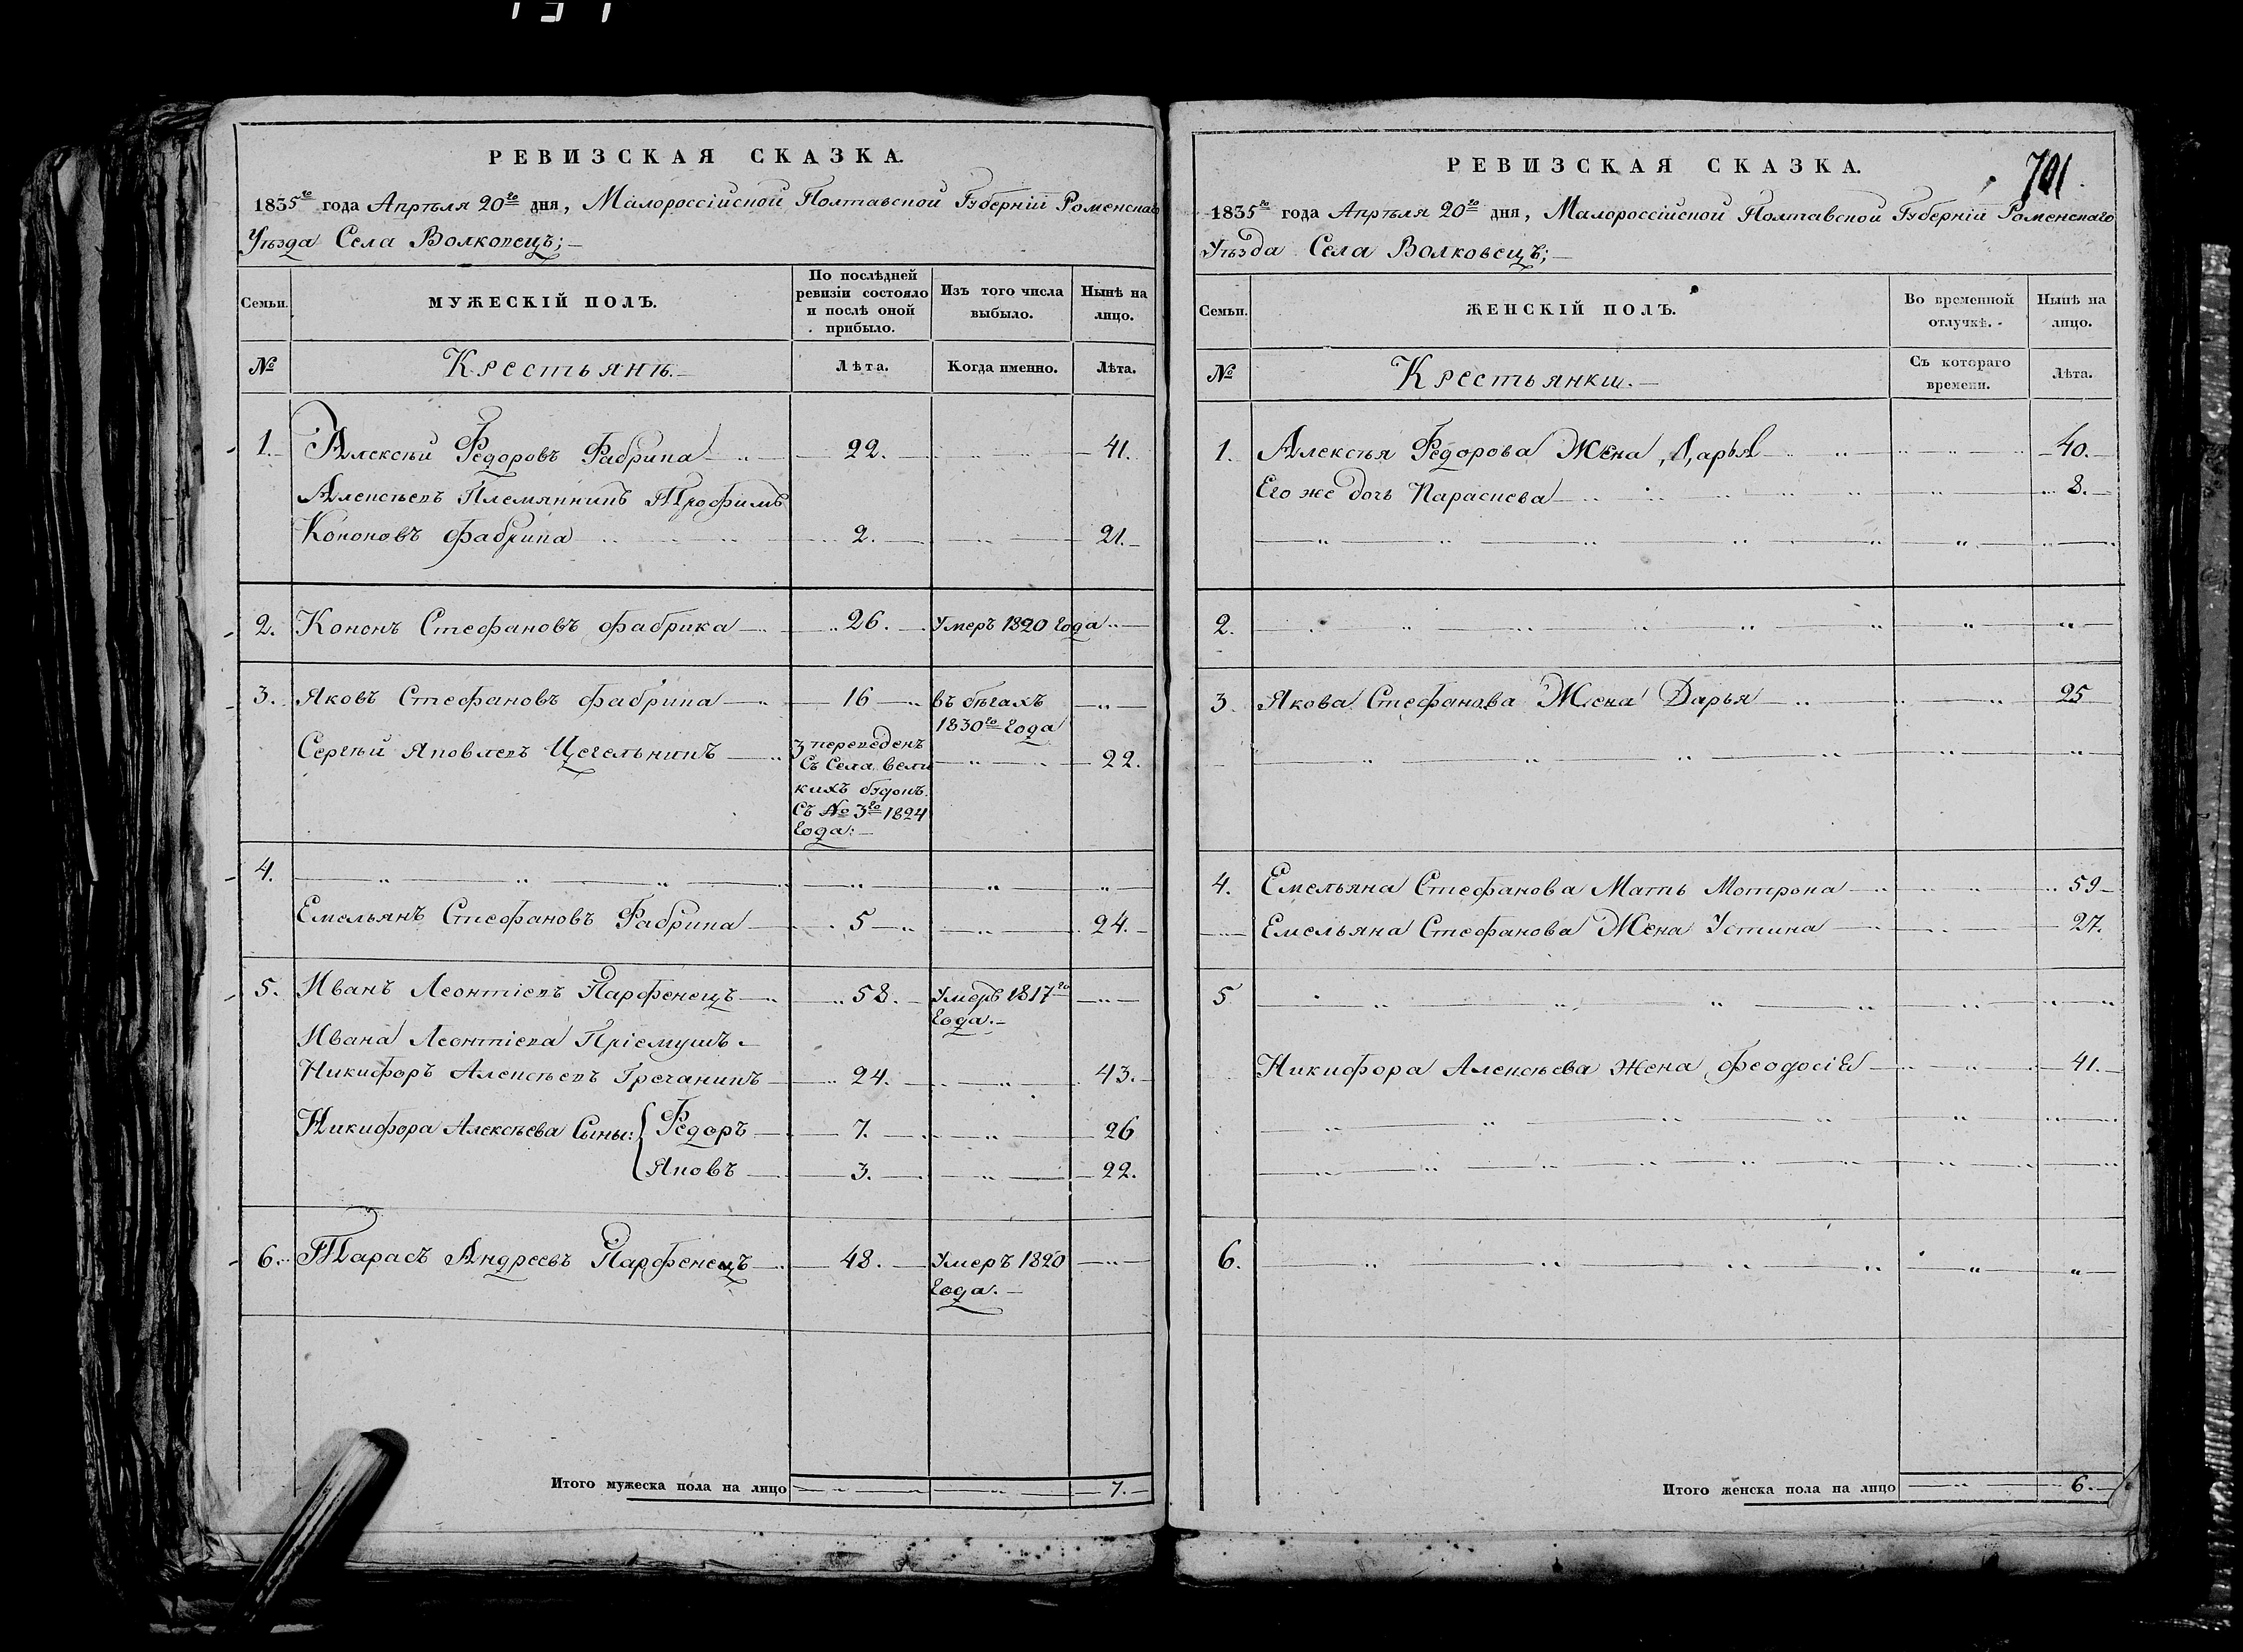 РЕВИЗСКАЯ СКАЗКА.
1835го года Апрѣля 20го дня, Малороссійской Полтавской Губерніи Роменскаго
Уѣзда Села Волковецъ;—
Семьи.
МУЖЕСКІЙ ПОЛЪ.
По послѣдней
ревизіи состояло
и послѣ оной
прибыло.
Изъ того числа
выбыло.
Нынѣ на
лицо.
№
Крестьянѣ.—
Лѣта.
Когда именно.
Лѣта.
1. Алексѣй Федоровъ Фабрика 22. 41.
Алексѣевъ Племянникъ Трофимъ
Кононовъ Фабрика 2. 21.
2. Кононъ Стефановъ Фабрика 26. Умеръ 1820 Года
3. Яковъ Стефановъ Фабрика 16 въ бѣгахъ
1830го Года
Сергѣй Яковлевъ Цегельникъ 3 переведенъ 22.
Съ Села вели
кихъ будокъ.
Съ № 3го 1824
Года:—
4.
Емельянъ Стефановъ Фабрика 5 24.
5. Иванъ Леонтіевъ Парфенецъ 58. Умеръ 1817го
Года.—
Ивана Леонтіева Пріемушъ
Никифоръ Алексѣевъ Гречаникъ 24. 43.
Никифора Алексѣева Сыны: Федоръ 7. 26
Яковъ 3. 22.
6. Тарасъ Андреевъ Парфенецъ 48. Умеръ 1820
Года.—
Итого мужеска пола на лицо 7.
РЕВИЗСКАЯ СКАЗКА.
701.
1835го года Апрѣля 20го дня, Малороссійской Полтавской Губерніи Роменскаго
Уѣзда Села Волковецъ;—
Семьи.
ЖЕНСКІЙ ПОЛЪ.
Во временной
отлучкѣ.
Нынѣ на
лицо.
№
Крестьянки.—
Съ котораго
времени.
Лѣта.
1. Алексѣя Федорова Жена Дарья 40.
Его же дочь Параскева 8.
2.
3. Якова Стефанова Жена Дарья 25
4. Емельяна Стефанова Мать Мотрона 59
Емельяна Стефанова Жена Устина 27.
5
Никифора Алексѣева жена Феодосія 41.
6.
Итого женска пола на лицо 6.